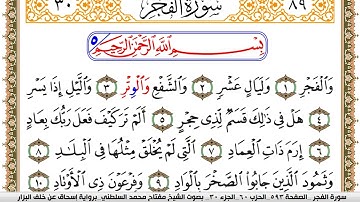 ٣٠ سُورَةُ الفَجْرِ ٨٩
بِسْمِ اللَّهِ الرَّحْمَٰنِ الرَّحِيمِ ٥
وَالْفَجْرِ ١ وَلَيَالٍ عَشْرٍ ٢ وَالشَّفْعِ وَالْوِتْرِ ٣ وَاللَّيْلِ إِذَا يَسْرِ
٤ هَلْ فِي ذَٰلِكَ قَسَمٌ لِّذِي حِجْرٍ ٥ أَلَمْ تَرَ كَيْفَ فَعَلَ رَبُّكَ بِعَادٍ
٦ إِرَمَ ذَاتِ الْعِمَادِ ٧ الَّتِي لَمْ يُخْلَقْ مِثْلُهَا فِي الْبِلَادِ ٨
وَثَمُودَ الَّذِينَ جَابُوا الصَّخْرَ بِالْوَادِ ٩ وَفِرْعَوْنَ ذِي الْأَوْتَادِ ١٠
سورة الفجر. الصفحة ٥٩٣ الحزب ٦٠. الجزء ٣٠. بصوت الشيخ مفتاح محمد السلطني. برواية إسحاق عن خلف البزار